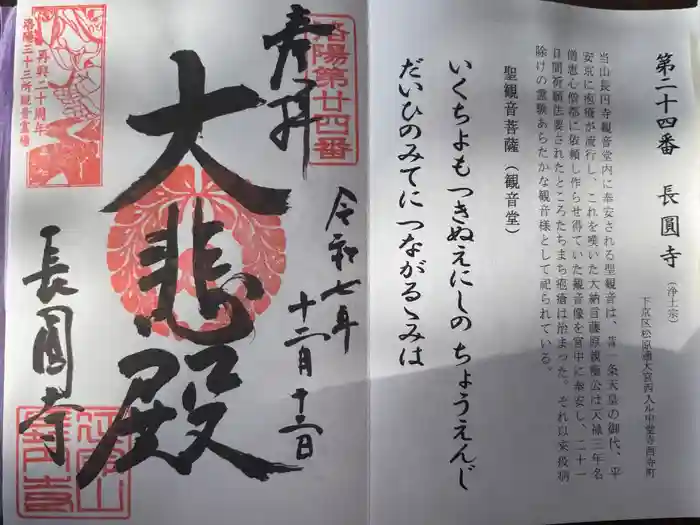 第二十四番 長圓寺 (浄土宗)
下京区松原通大宮西入ル中堂寺西寺町
当山長円寺観音堂内に奉安される聖観音は、昔一条天皇の御代、平
安京に疱瘡が流行し、これを嘆いた大納言藤原親衡公は天禄三年名
僧恵心僧都に依頼し作らせ得ていた観音像を宮中に奉安し、二十一
日間祈願法要されたところたちまち疱瘡は治まった。それ以来疫病
除けの霊験あらたかな観音様として祀られている。
聖観音菩薩(観音堂)
いくちよもつきぬえにしの ちょうえんじ
だいひのみてに つながるゝみは
洛陽第廿四番
奉拝
令和七年
十二月十三日
大悲殿
長圓寺
再興二十周年
洛陽三十三所観音霊場